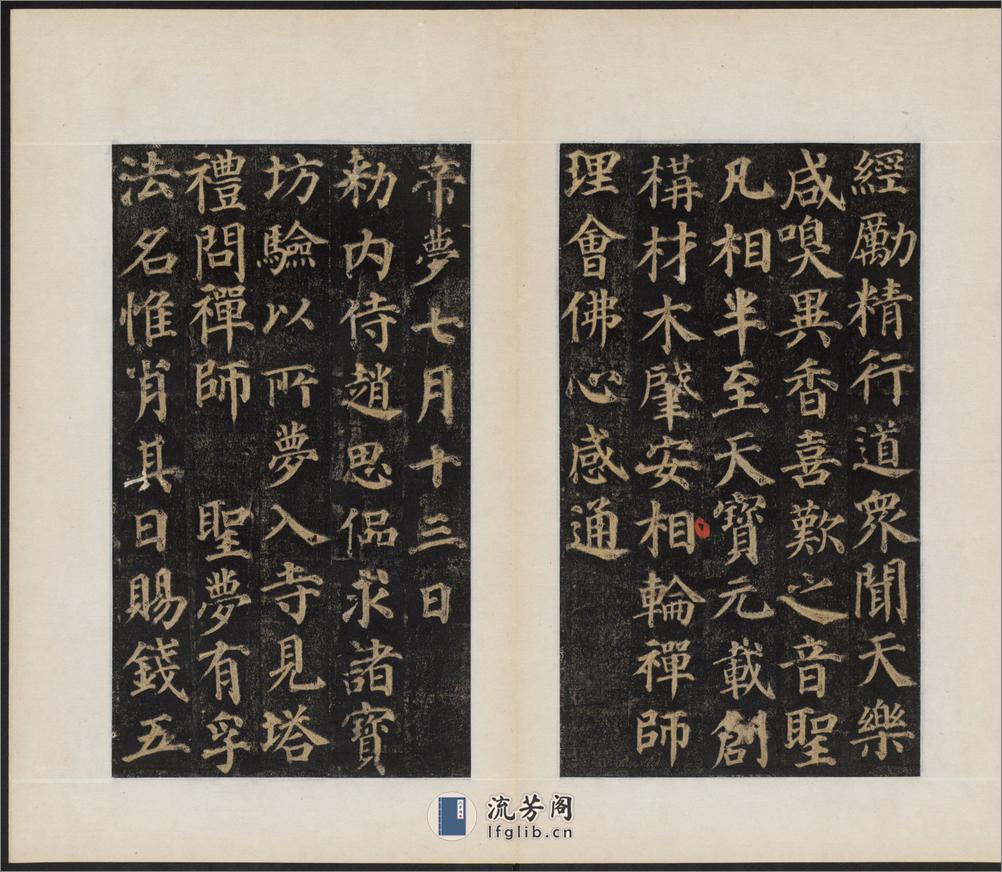 經勵精行道眾聞天樂
咸嗅異香喜歎之音聖
凡相半至天寶元載創
構材木肇安相輪禪師
理會佛心感通
帝夢七月十三日
勑內侍趙思侃求諸寶
坊驗以所夢入寺見塔
禮問禪師 聖夢有孚
法名惟肖其日賜錢五
流芳阁
lfglib.cn